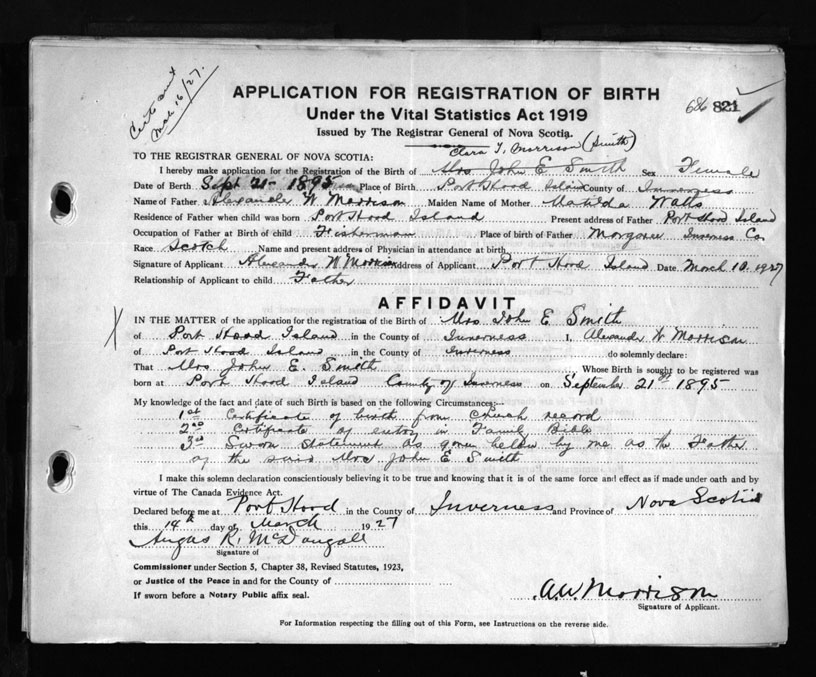 Mar 16/27.
APPLICATION FOR REGISTRATION OF BIRTH
686 821
Under the Vital Statistics Act 1919
Issued by The Registrar General of Nova Scotia.
Clara T. Morrison (Smith)
TO THE REGISTRAR GENERAL OF NOVA SCOTIA:
I hereby make application for the Registration of the Birth of Mrs John E Smith Sex Female
Date of Birth Sept 21 - 1895 Place of Birth Port Hood Island County of Inverness
Name of Father Alexander W Morrison Maiden Name of Mother Matilda Watts
Residence of Father when child was born Port Hood Island Present address of Father Port Hood Island
Occupation of Father at Birth of child Fisherman Place of birth of Father Margaree Inverness Co
Race Scotch Name and present address of Physician in attendance at birth
Signature of Applicant Alexander W Morrison Address of Applicant Port Hood Island Date March 10. 1927
Relationship of Applicant to child Father
AFFIDAVIT
IN THE MATTER of the application for the registration of the Birth of Mrs John E Smith
of Port Hood Island in the County of Inverness I, Alexander W Morrison
of Port Hood Island in the County of Inverness do solemnly declare:
That Mrs John E. Smith Whose Birth is sought to be registered was
born at Port Hood Island County of Inverness on September 21st 1895
My knowledge of the fact and date of such Birth is based on the following Circumstances:—
1st Certificate of birth from Church record
2nd Certificate of entry in Family Bible
3rd Sworn statement as given below by me as the Father
of the said Mrs John E Smith
I make this solemn declaration conscientiously believing it to be true and knowing that it is of the same force and effect as if made under oath and by
virtue of The Canada Evidence Act.
Declared before me at Port Hood in the County of Inverness and Province of Nova Scotia
this 14th day of March 1927
Angus R. McDougall
Signature of
Commissioner under Section 5, Chapter 38, Revised Statutes, 1923,
or Justice of the Peace in and for the County of
If sworn before a Notary Public affix seal.
A.W. Morrison
Signature of Applicant.
For Information respecting the filling out of this Form, see Instructions on the reverse side.